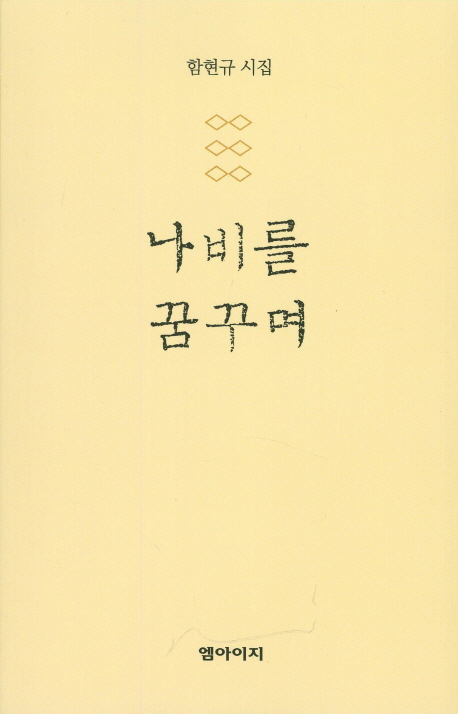 함현규 시집
나비를
꿈꾸며
엠아이지